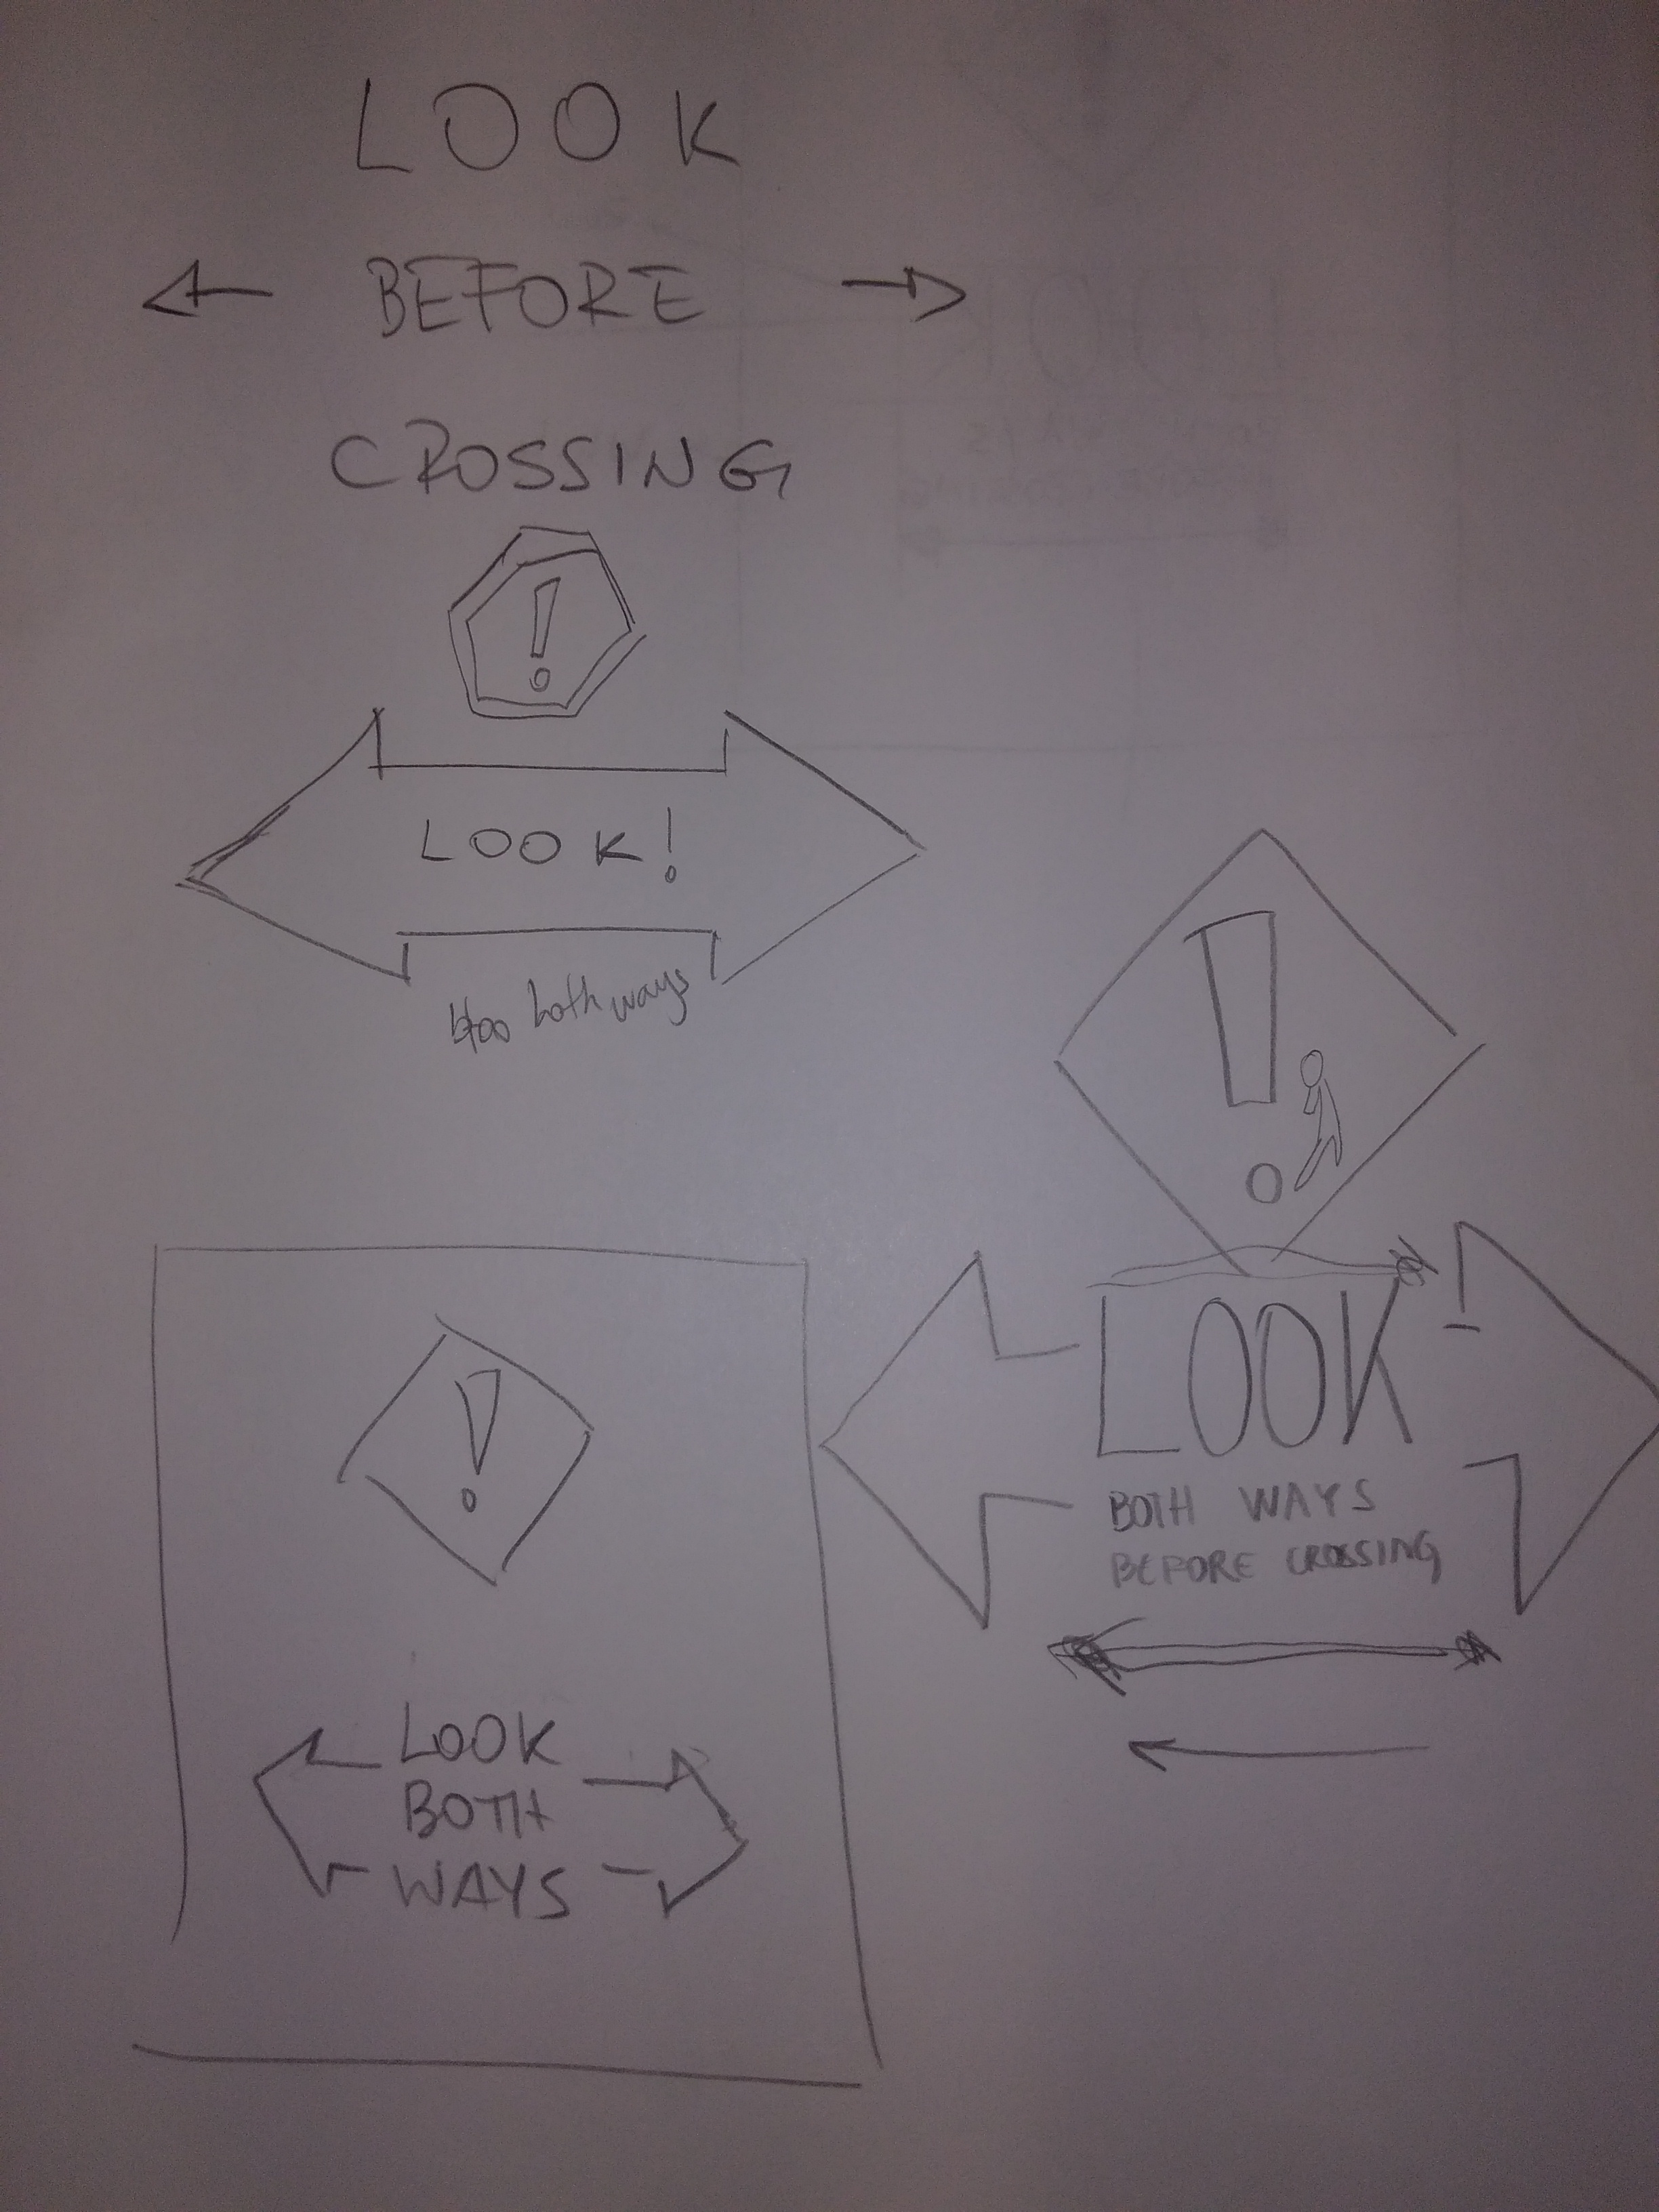 LOOK
BEFORE
CROSSING
!
LOOK!
both ways
!
LOOK
BOTH WAYS
BEFORE CROSSING
!
LOOK
BOTH
WAYS